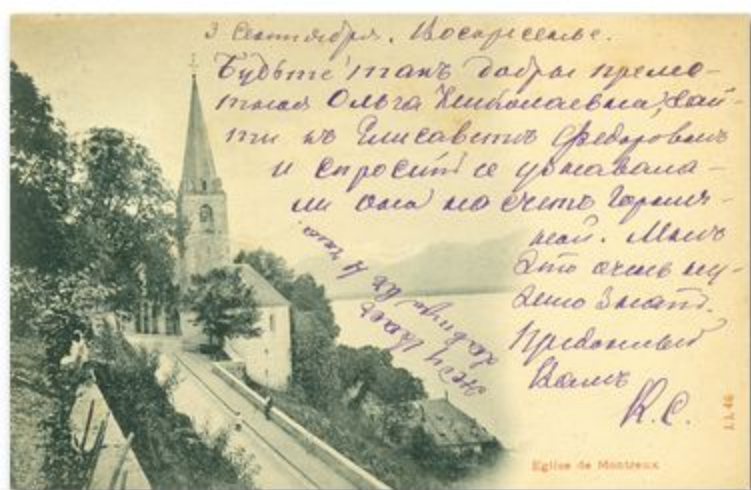 3 Сентября. Воскресенье.
Будьте такъ добры прелес-
тная Ольга Николаевна, зай-
ти къ Елисаветѣ Федоровнѣ
и спросить ее узнавала-
ли она на счетъ Горнич-
ной. Мнѣ
это очень ну-
жно знать.
Преданный
Вамъ
К.С.
жду Васъ
завтра въ 4 часа.
Eglise de Montreux
J.J. 46